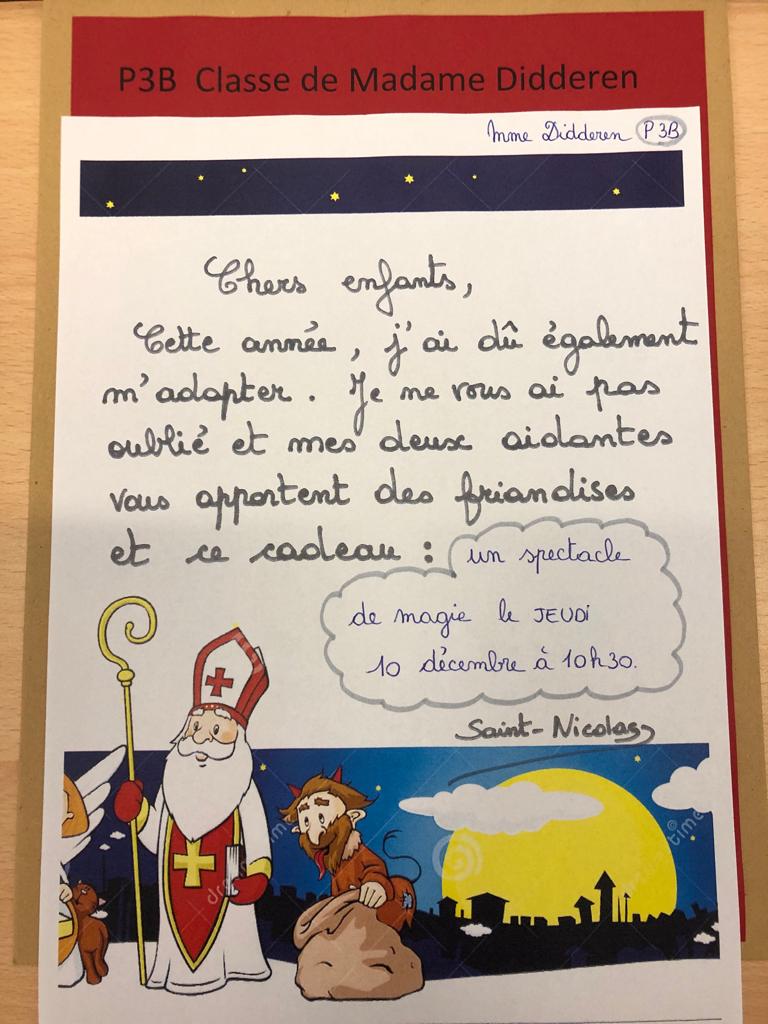 P3B Classe de Madame Didderen
Mme Didderen P3B
Chers enfants,
Cette année, j'ai dû également
m'adapter. Je ne vous ai pas
oublié et mes deux aidantes
vous apportent des friandises
et ce cadeau : un spectacle
de magie le JEUDI
10 décembre à 10h30.
Saint-Nicolas